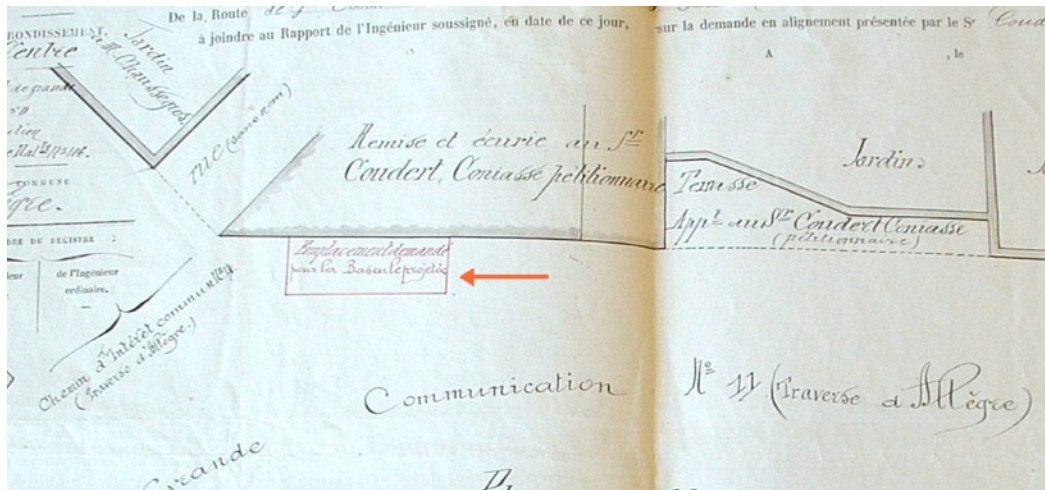 De la Route de g
à joindre au Rapport de l'Ingénieur soussigné, en date de ce jour, sur la demande en alignement présentée par le Sr Coud
A , le
RONDISSEMENT.
Centre
de grande
COMMUNE
ègre.
DRE DU REGISTRE :
ieur
de l'Ingénieur
ordinaire.
Jardin
a M. Chaussegros
rue (sans nom)
Remise et écurie au Sr
Coudert, Coniasse pétitionnaire
Terrasse
Appt au Sr Coudert Coniasse
(pétitionnaire)
Jardin.
Emplacement demandé
pour la Bascule projetée
Chemin d'Intérêt commun
(Traverse d'Allègre.)
Communication No 11 (Traverse d'Allègre)
Grande